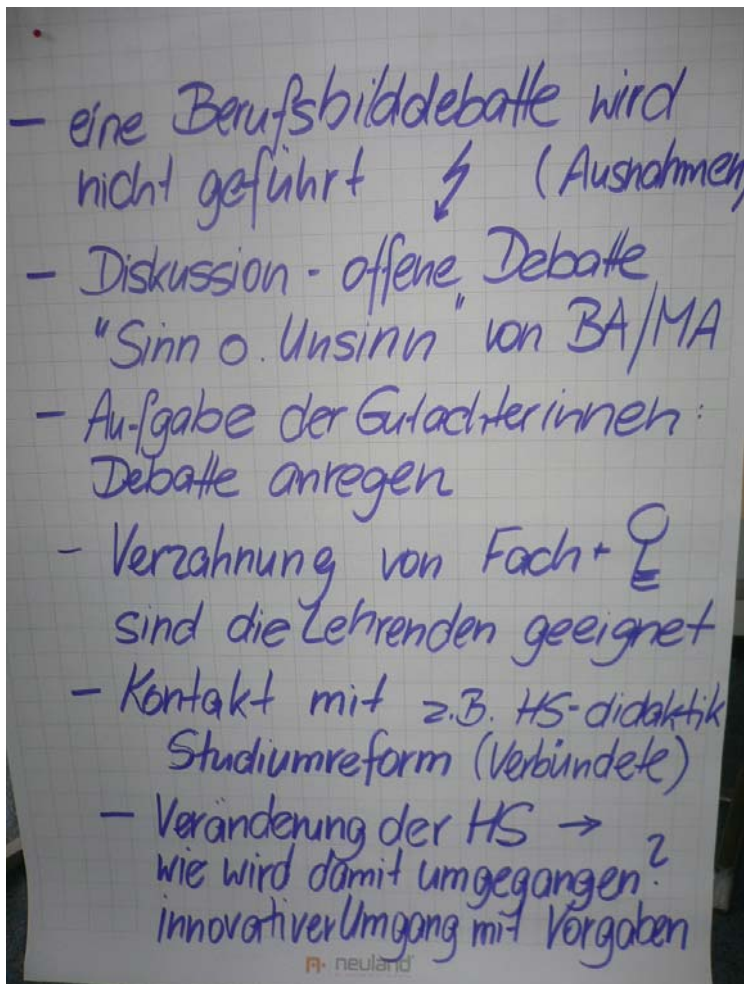 - eine Berufsbilddebatte wird
nicht geführt (Ausnahmen)
- Diskussion - offene Debatte
"Sinn o. Unsinn" von BA/MA
- Aufgabe der Gutachterinnen:
Debatte anregen
- Verzahnung von Fach +
sind die Lehrenden geeignet
- Kontakt mit z.B. HS-didaktik
Studiumreform (Verbündete)
- Veränderung der HS →
wie wird damit umgegangen?
innovativer Umgang mit Vorgaben
neuland